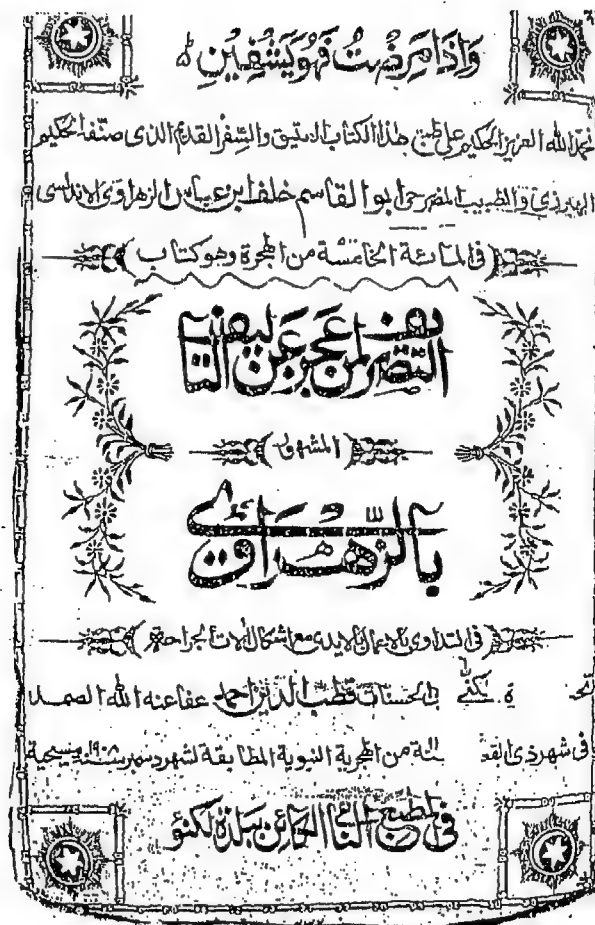 وَاِذَا مَرِضْتُ فَهُوَ يَشْفِيْنِ
نحمد الله العزيز الحكيم على طبع هذا الكتاب الانيق والسِّفر القديم الذى صنّفه الحكيم
الهبرزي والطبيب المضرحى ابو القاسم خلف ابن عباس الزهراوى الاندلسى
فى المائة الخامسة من الهجرة وهو كتاب
التصريف لمن عجز عن التاليف
المشهور
بالزَّهْرَاوِى
فى التداوى بالاعمال بالايدى مع اشكال الات الجراحة
يكنّى الحسنات قطب الدين احمد عفا عنه الله الصمد
فى شهر ذى من الهجرية النبوية المطابقة لشهر دسمبر سنه ١٩٠٨ مسيحية
فى المطبع النامى بلدة لكنؤ